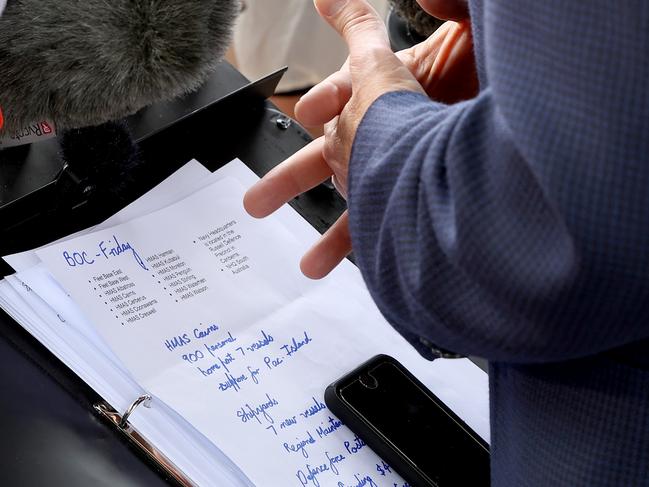 Rycote
BOC - Friday
• Fleet Base East
• Fleet Base West
• HMAS Albatross
• HMAS Cairns
• HMAS Cerberus
• HMAS Coonawarra
• HMAS Creswell
• HMAS Harman
• HMAS Kuttabul
• HMAS Moreton
• HMAS Penguin
• HMAS Stirling
• HMAS Waterhen
• HMAS Watson
• Navy Headquarters
is located in the
Russell Defence
Precinct in
Canberra
• NHQ South
Australia
HMAS Cairns
900 personnel
home port 7 vessels
support for Pac. Island
Shipyards
7 new vessels
Regional Mainten
Defence force Post
$4